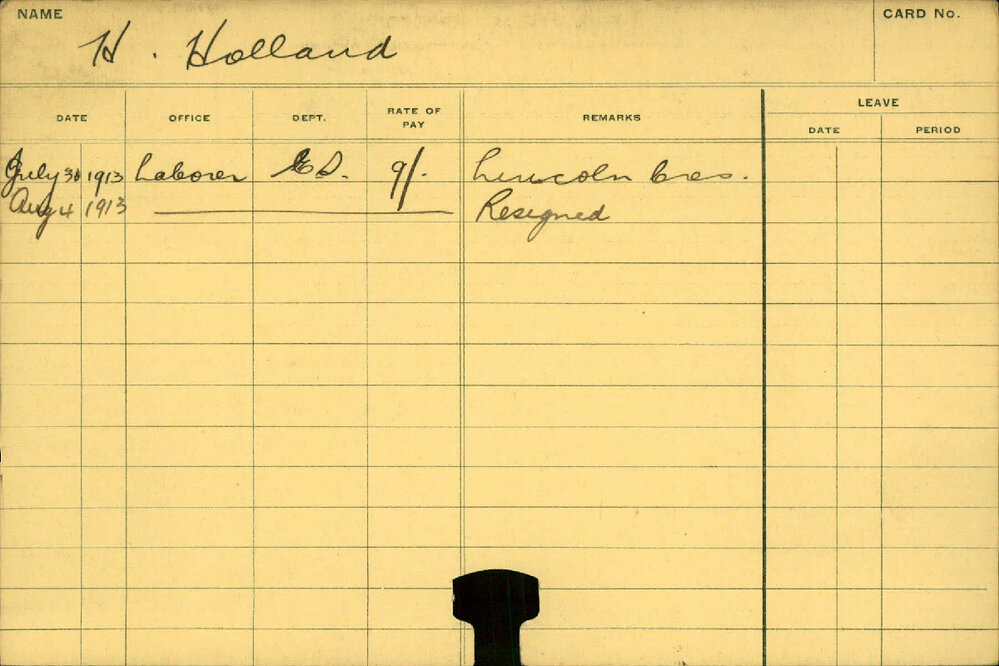 NAME CARD No.
H. Holland
DATE OFFICE DEPT. RATE OF PAY REMARKS LEAVE
DATE PERIOD
July 30 1913 Laborer E.D. 9/. Lincoln Cres.
Aug 4 1913 Resigned